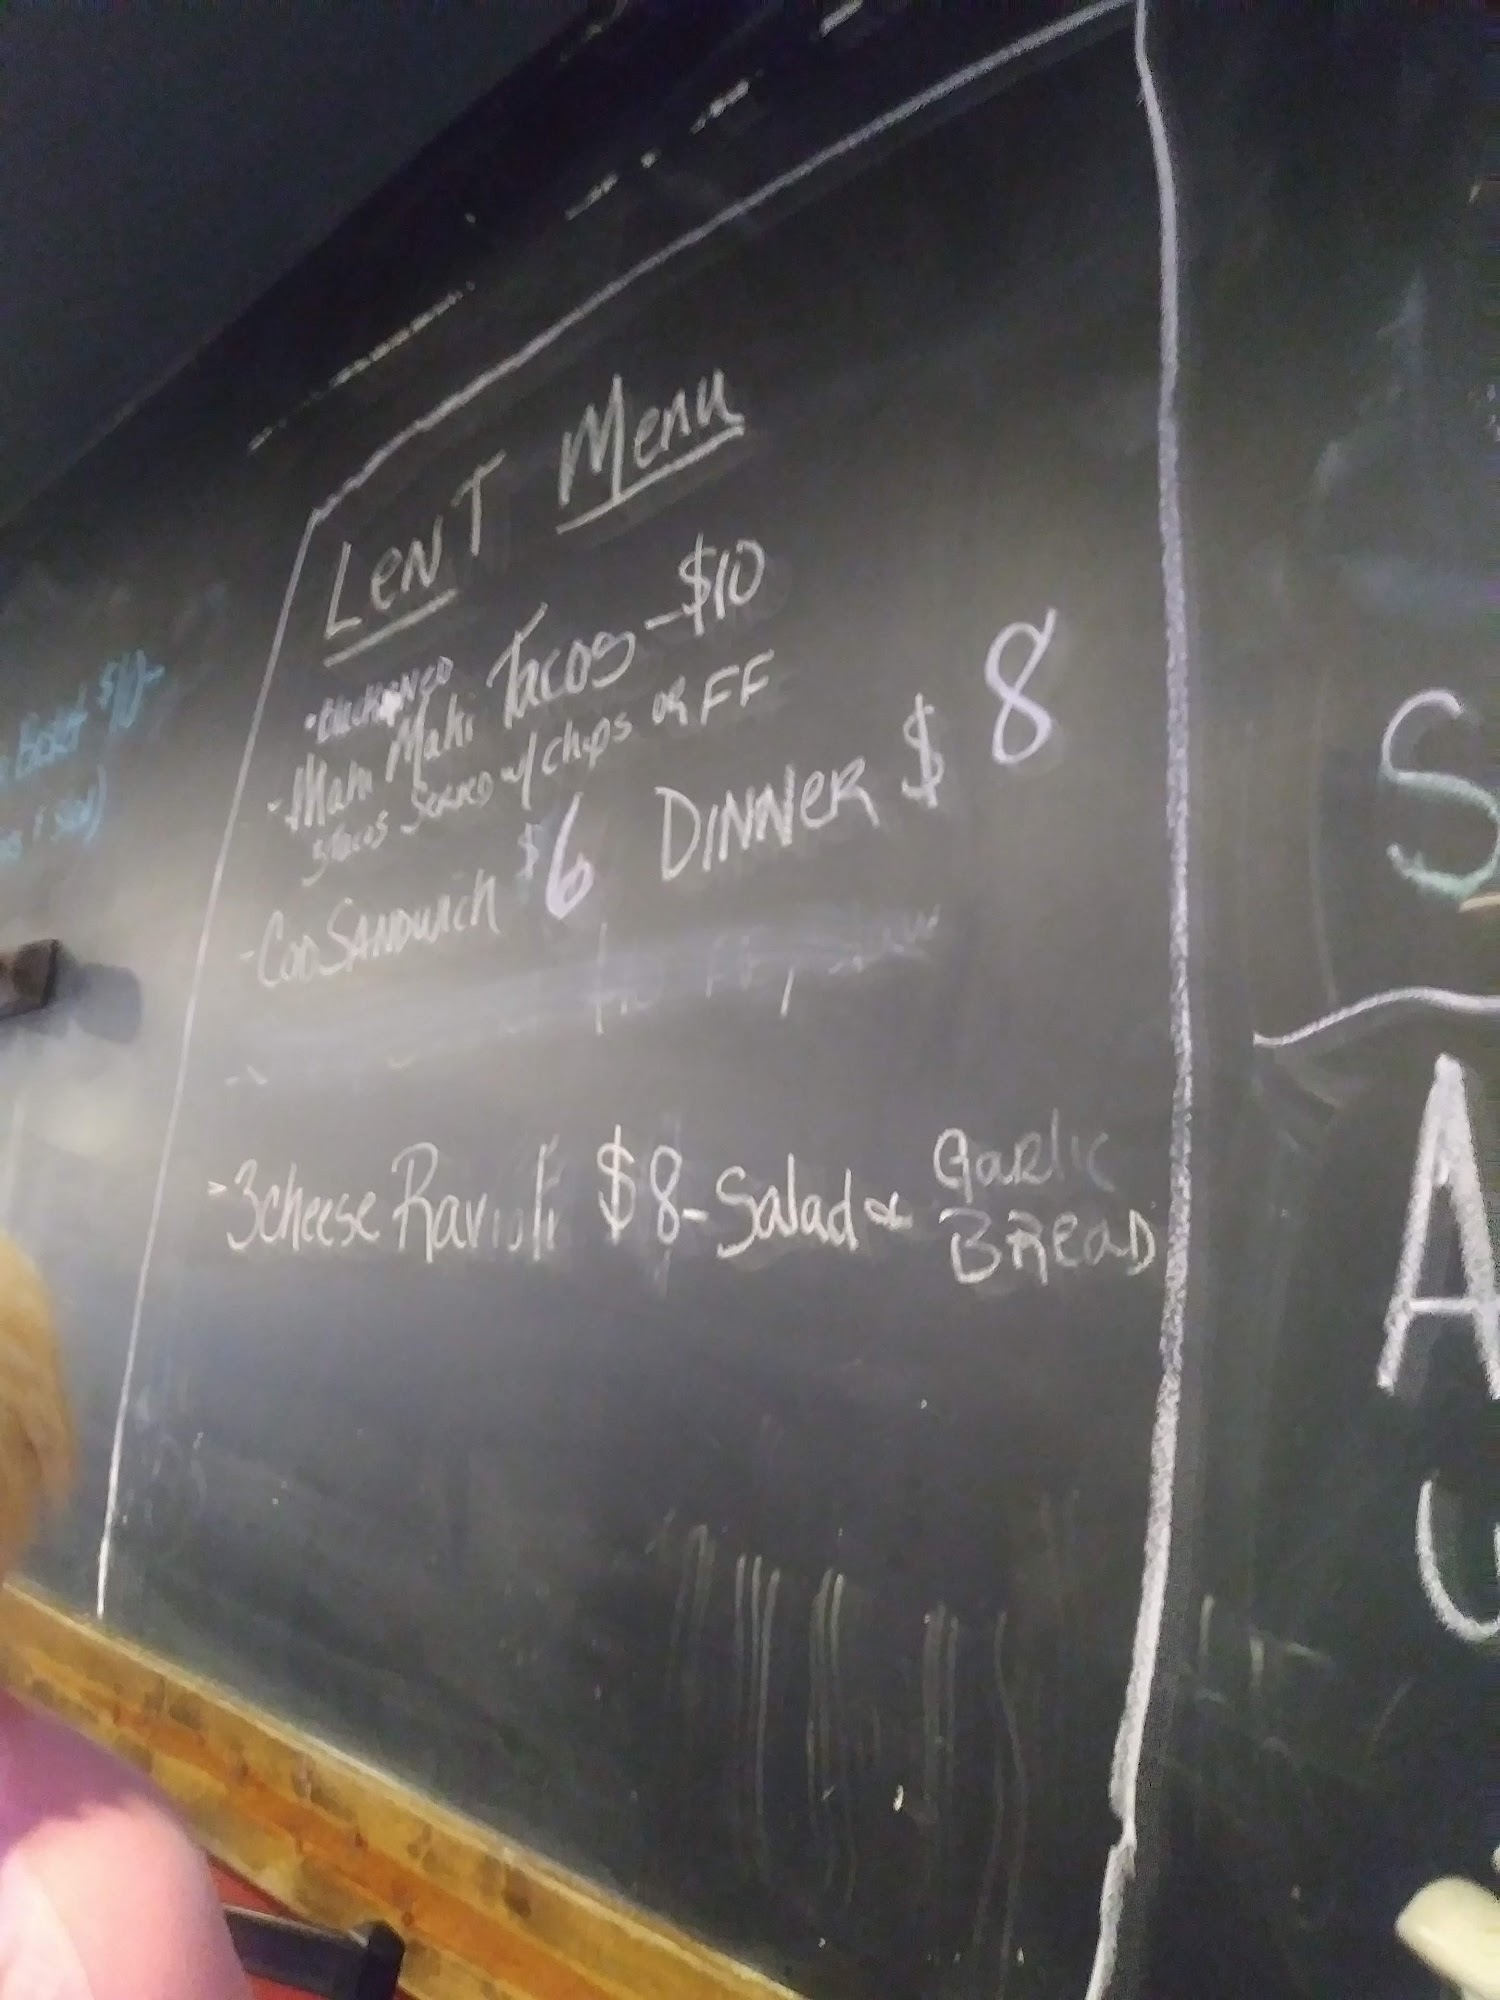 LenT Menu
- BlackeNeD
- Mahi Mahi Tacos - $10
3 Tacos Served w/ Chips or FF
- Cod SANDwich $6 DINNeR $8
FF, Slaw
3 cheese Ravioli $8 - Salad & Garlic BReaD
S
A